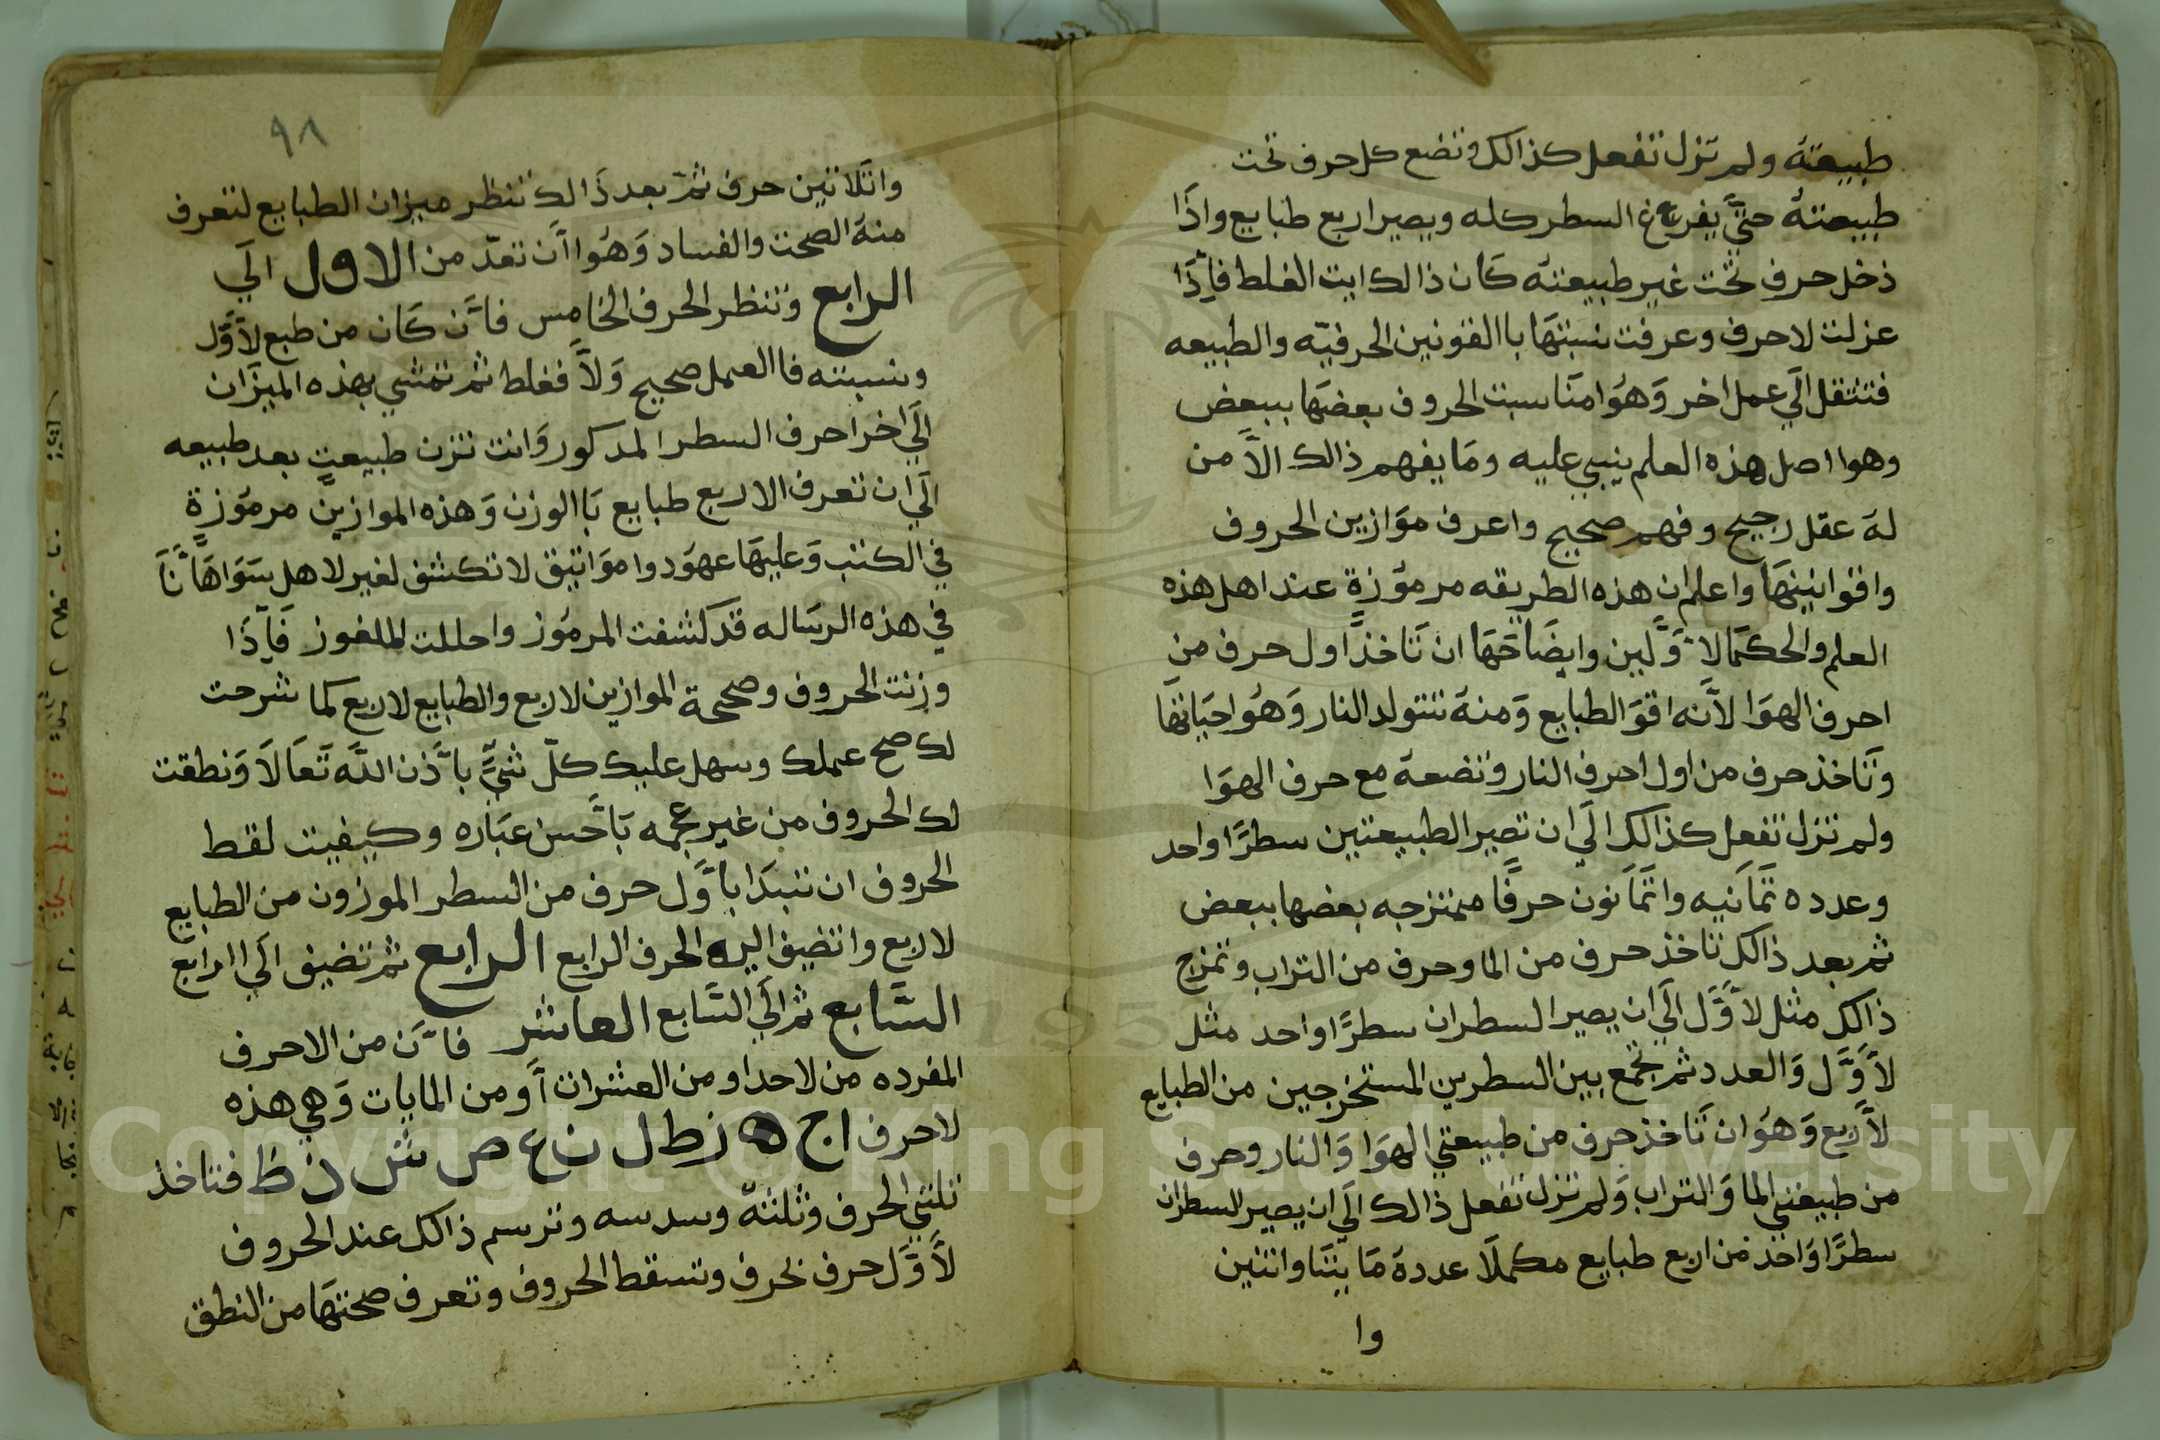 طبيعته ولم تزل تفعل كذالك وتضع كل حرف تحت
طبيعتهُ حتَّي يفرغ السطر كله ويصير اربع طبايع واذَا
دخل حرف تحت غير طبيعته كَان ذالك ايت الغلط فاِذَا
عزلت لاحرف وعرفت نسبتهَا باالقونين الحرفيّه والطبيعه
فتنتقل الَي عمل اخر وَهوُا منَاسبت الحروف بعضهَا ببعض
وهوا اصل هذه العلم ينبي عليه ومَا يفهم ذالك الاَّ من
لهَ عقل رجيح وفهم صحيح واعرف موَازين الحروف
واقوانينهَا واعلم ان هذه الطريقه مرموُزة عند اهل هذه
العلم والحكمَا لاَوَّلين وايضَاحَهَا ان تَاخذ اول حرف من
احرف الهوَا لاَّنه اقوَ الطبايع وَمنهَ تتولد النار وَهوُا حيَاتهَا
وتَاخذ حرف من اول احرف النار وتضعهَ مع حرف الهوَا
ولم تزل تفعل كذالك الَي ان تصير الطبيعتين سطرًا واحد
وعدده ثمَانيه واثمَانون حرفًا ممتزجه بعضها ببعض
ثم بعد ذالك تاخذ حرف من الما وحرف من التراب وتمزج
ذالك مثل لاَوَّل الَي ان يصير السطران سطرًا واحد مثل
لاَوَّل وَالعدد ثم تجمع بين السطرين المستخرجين من الطبايع
لاَربع وَهوُ ان تَاخذ حرف من طبيعتي الهوَا وَالنار وحرف
من طبيعتي الما وَالتراب وَلم تزل تفعل ذالك الَي ان يصير السطران
سطرًا وَاحد من اربع طبايع مكملاَ عددهَ مَايتَا واثنين
وا
٩٨
واثلاَثين حرف ثمّ بعد ذَالك تنظر ميزان الطبايع لتعرف
منهَ الصحت والفساد وَهوُا اَن تعدّ من الاول الَي
الرابع وتنظر الحرف الخَامس فاَِن كَان من طبع لاَوَّل
ونسبته فاالعمل صحيح وَلاَّ فغلط ثم تمشي بهذه الميزَان
الَي اخر احرف السطر المدكور وَانت تزن طبيعت بعد طبيعه
الَي ان تعرف الاربع طبايع بَاالوزن وَهذه الموازين مرموُزة
في الكتب وَعليهَا عهوُد وامَوَاثيق لا تكشف لغير لاهل سَوَاهَا نَا
في هذه الرسَاله قَد كشفت المرموُز واحللت الملغوز فاَِذَا
وزنت الحروف وصححة الموازين لاربع والطبايع لاربع كما شرحت
لك صح عملك وسهل عليك كلّ شيَّ باَِذن اللهَ تَعَالاَ وَنطقت
لك الحروف من غير عجمه بَاَحسن عبَاره وكيفيت لقط
الحروف ان تبتدَا باَوَّل حرف من السطر الموزون من الطبايع
لاربع واتضيف اليه الحرف الرابع الرابع ثم تضيف الَي الرابع
السَّابع ثم الَي السَّابع العاشر فاَِن من الاحرف
المفرده من لاحد او من العشرات اَو من المايات وَهي هذه
لاحرف ا ج ه ز ط ل ن ع ص ش ذ ظ فتاخذ
ثلثي الحرف وثلثهّ وسدسه وترسم ذالك عند الحروف
لاَوَّل حرف بحرف وتسقط الحروف وتعرف صحتهَا من النطق
Copyright © King Saud University